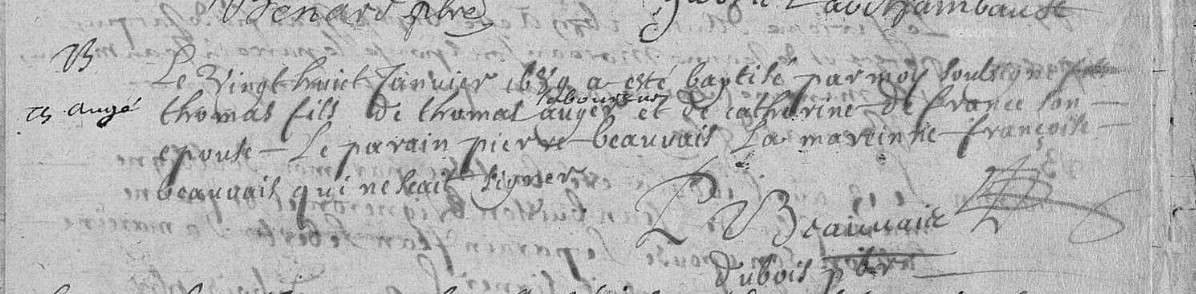 Benard pbre
B
Le Vingt huict Janvier 1689 a esté baptisé par moy soulsigné
th augé thomas fils de thomas augé laboureur et de catherine de france son
epouse Le parain pierre beauvais La mareinne françoise
beauvais qui ne scait signer
P Beauvais
dubois pbre